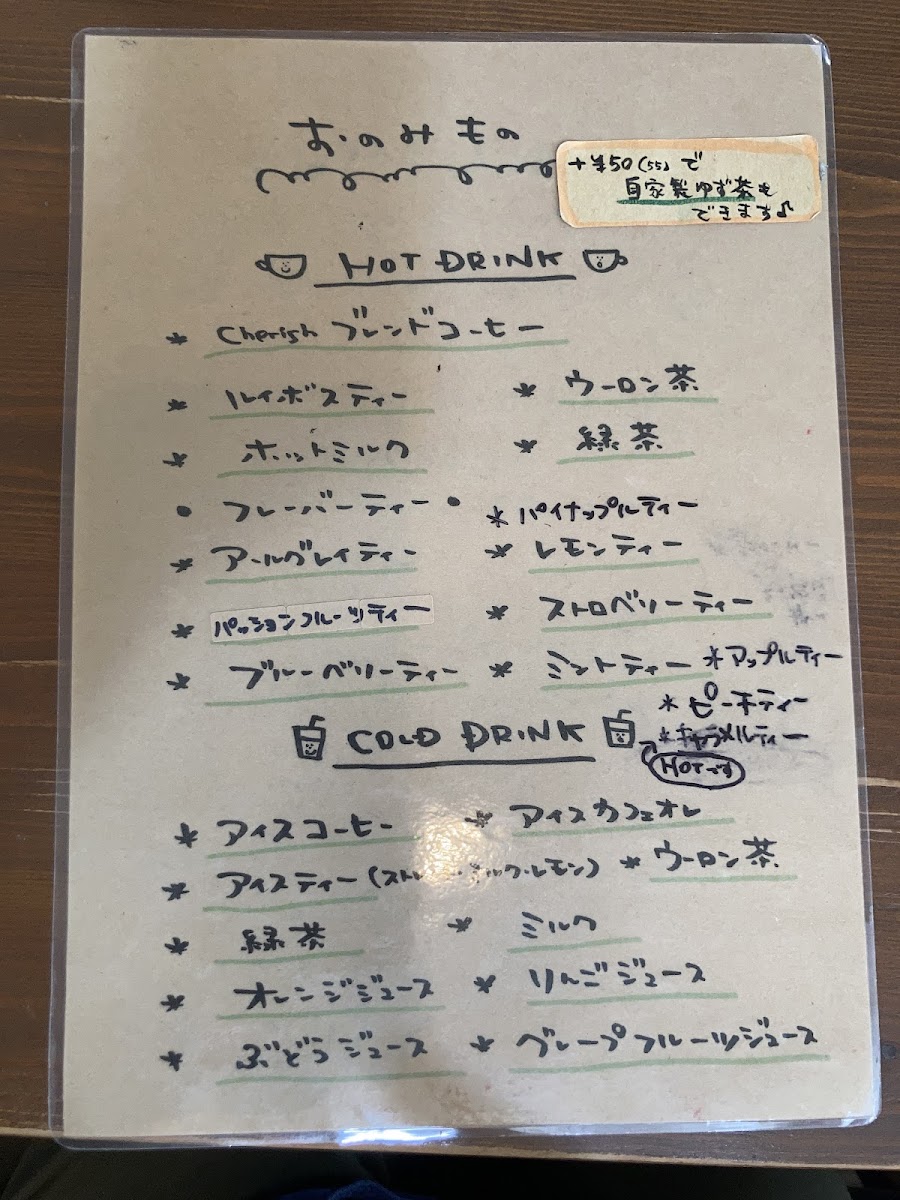 おのみもの
+¥50(55)で
自家製ゆず茶も
できます♪
HOT DRINK
* Cherish ブレンドコーヒー
* ルイボスティー * ウーロン茶
* ホットミルク * 緑茶
• フレーバーティー • * パイナップルティー
* アールグレイティー * レモンティー
* パッションフルーツティー * ストロベリーティー
* ブルーベリーティー * ミントティー * アップルティー
* ピーチティー
* キャラメルティー
HOTです
COLD DRINK
* アイスコーヒー * アイスカフェオレ
* アイスティー(ストレート・ミルク・レモン) * ウーロン茶
* 緑茶 * ミルク
* オレンジジュース * りんごジュース
* ぶどうジュース * グレープフルーツジュース